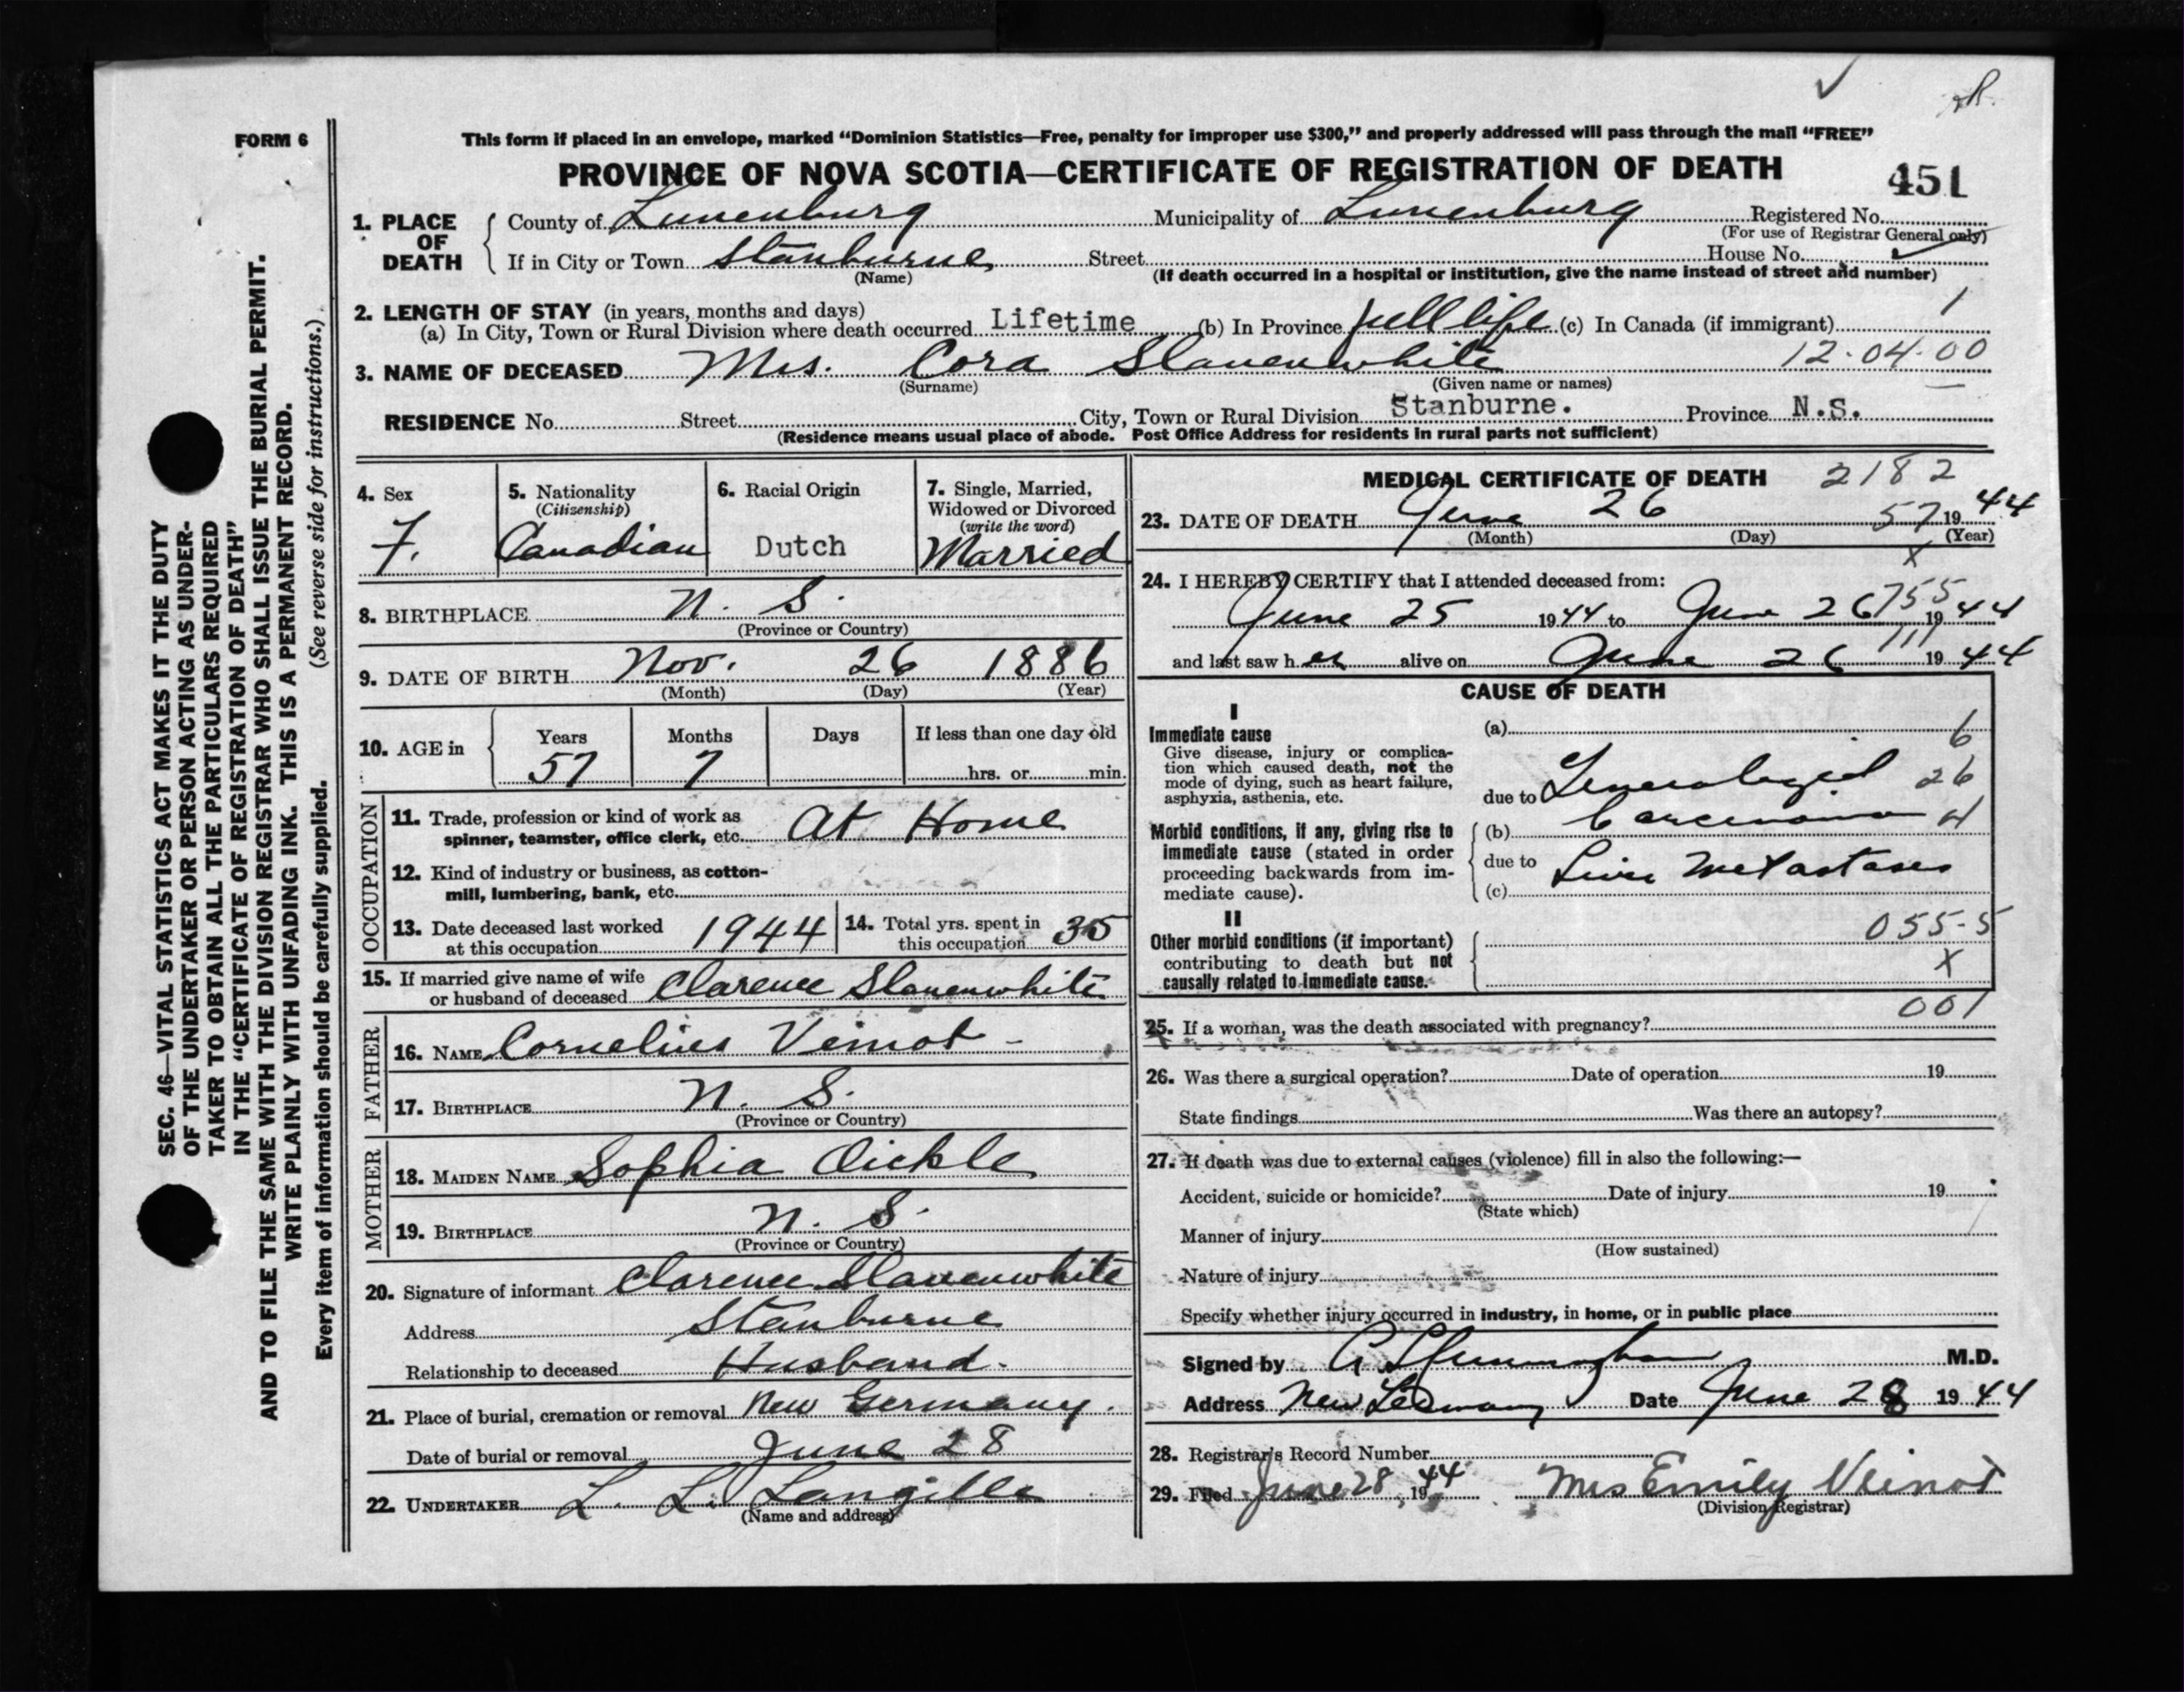 ✓
FORM 6
This form if placed in an envelope, marked “Dominion Statistics—Free, penalty for improper use $300,” and properly addressed will pass through the mail “FREE”
PROVINCE OF NOVA SCOTIA—CERTIFICATE OF REGISTRATION OF DEATH
451
1. PLACE OF DEATH
County of Lunenburg Municipality of Lunenburg Registered No.
(For use of Registrar General only)
If in City or Town Stanburne Street House No.
(Name) (If death occurred in a hospital or institution, give the name instead of street and number)
2. LENGTH OF STAY (in years, months and days)
(a) In City, Town or Rural Division where death occurred Lifetime (b) In Province full life (c) In Canada (if immigrant) 1
3. NAME OF DECEASED Mrs. Cora Slauenwhite 12-04-00
(Surname) (Given name or names)
RESIDENCE No. Street City, Town or Rural Division Stanburne. Province N.S.
(Residence means usual place of abode. Post Office Address for residents in rural parts not sufficient)
4. Sex F.
5. Nationality (Citizenship) Canadian
6. Racial Origin Dutch
7. Single, Married, Widowed or Divorced (write the word) Married
8. BIRTHPLACE N. S.
(Province or Country)
9. DATE OF BIRTH Nov. 26 1886
(Month) (Day) (Year)
10. AGE in Years 57 Months 7 Days If less than one day old hrs. or min.
OCCUPATION
11. Trade, profession or kind of work as
spinner, teamster, office clerk, etc. At Home
12. Kind of industry or business, as cotton-
mill, lumbering, bank, etc.
13. Date deceased last worked
at this occupation 1944
14. Total yrs. spent in
this occupation 35
15. If married give name of wife
or husband of deceased Clarence Slauenwhite
FATHER
16. NAME Cornelius Veinot
17. BIRTHPLACE N. S.
(Province or Country)
MOTHER
18. MAIDEN NAME Sophia Oickle
19. BIRTHPLACE N. S.
(Province or Country)
20. Signature of informant Clarence Slauenwhite
Address Stanburne
Relationship to deceased Husband.
21. Place of burial, cremation or removal New Germany.
Date of burial or removal June 28
22. UNDERTAKER L. L. Langille
(Name and address)
MEDICAL CERTIFICATE OF DEATH 2182
23. DATE OF DEATH June 26 57 1944
(Month) (Day) (Year)
X
24. I HEREBY CERTIFY that I attended deceased from:
755
June 25 1944 to June 26 1944
111
and last saw her alive on June 26 1944
CAUSE OF DEATH
I
Immediate cause
Give disease, injury or complica-
tion which caused death, not the
mode of dying, such as heart failure,
asphyxia, asthenia, etc.
(a) 6
due to Generalized 26
Morbid conditions, if any, giving rise to
immediate cause (stated in order
proceeding backwards from im-
mediate cause).
(b) Carcinoma
due to Liver metastases
(c)
II
Other morbid conditions (if important)
contributing to death but not
causally related to immediate cause.
055-5
X
001
25. If a woman, was the death associated with pregnancy?
26. Was there a surgical operation? Date of operation 19
State findings Was there an autopsy?
27. If death was due to external causes (violence) fill in also the following:—
Accident, suicide or homicide? Date of injury 19
(State which)
Manner of injury
(How sustained)
Nature of injury
Specify whether injury occurred in industry, in home, or in public place
Signed by M.D.
Address New Germany Date June 28 1944
28. Registrar's Record Number
29. Filed June 28, 1944 Mrs Emily Veinot
(Division Registrar)
SEC. 46—VITAL STATISTICS ACT MAKES IT THE DUTY
OF THE UNDERTAKER OR PERSON ACTING AS UNDER-
TAKER TO OBTAIN ALL THE PARTICULARS REQUIRED
IN THE “CERTIFICATE OF REGISTRATION OF DEATH”
AND TO FILE THE SAME WITH THE DIVISION REGISTRAR WHO SHALL ISSUE THE BURIAL PERMIT.
WRITE PLAINLY WITH UNFADING INK. THIS IS A PERMANENT RECORD.
Every item of information should be carefully supplied. (See reverse side for instructions.)